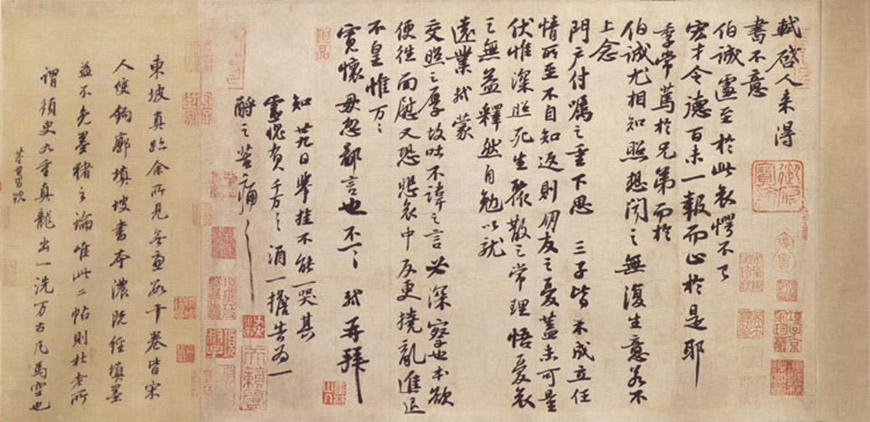 軾啓人來得
書不意
伯誠遽至於此哀愕不已
宏才令德百未一報而止於是耶
季常篤於兄弟而於
伯誠尤相知照想聞之無復生意若不
上念
門戶付囑之重下思三子皆不成立任
情所至不自知返則朋友之憂蓋未可量
伏惟深照死生聚散之常理悟憂哀
之無益釋然自勉以就
遠業軾蒙
交照之厚故吐不諱之言必深察也本欲
便往面慰又恐悲哀中反更撓亂進退
不皇惟萬萬
寬懷毋忽鄙言也不一一軾再拜
知廿九日舉掛不能一哭其
靈愧負千万千万酒一擔告為一
酹之苦痛苦痛
東坡真跡余所見無慮數十卷皆宋
人雙鉤廓填坡書本濃既經填墨
益不免墨豬之論唯此二帖則杜老所
謂須臾九重真龍出一洗万古凡馬空也
董其昌跋